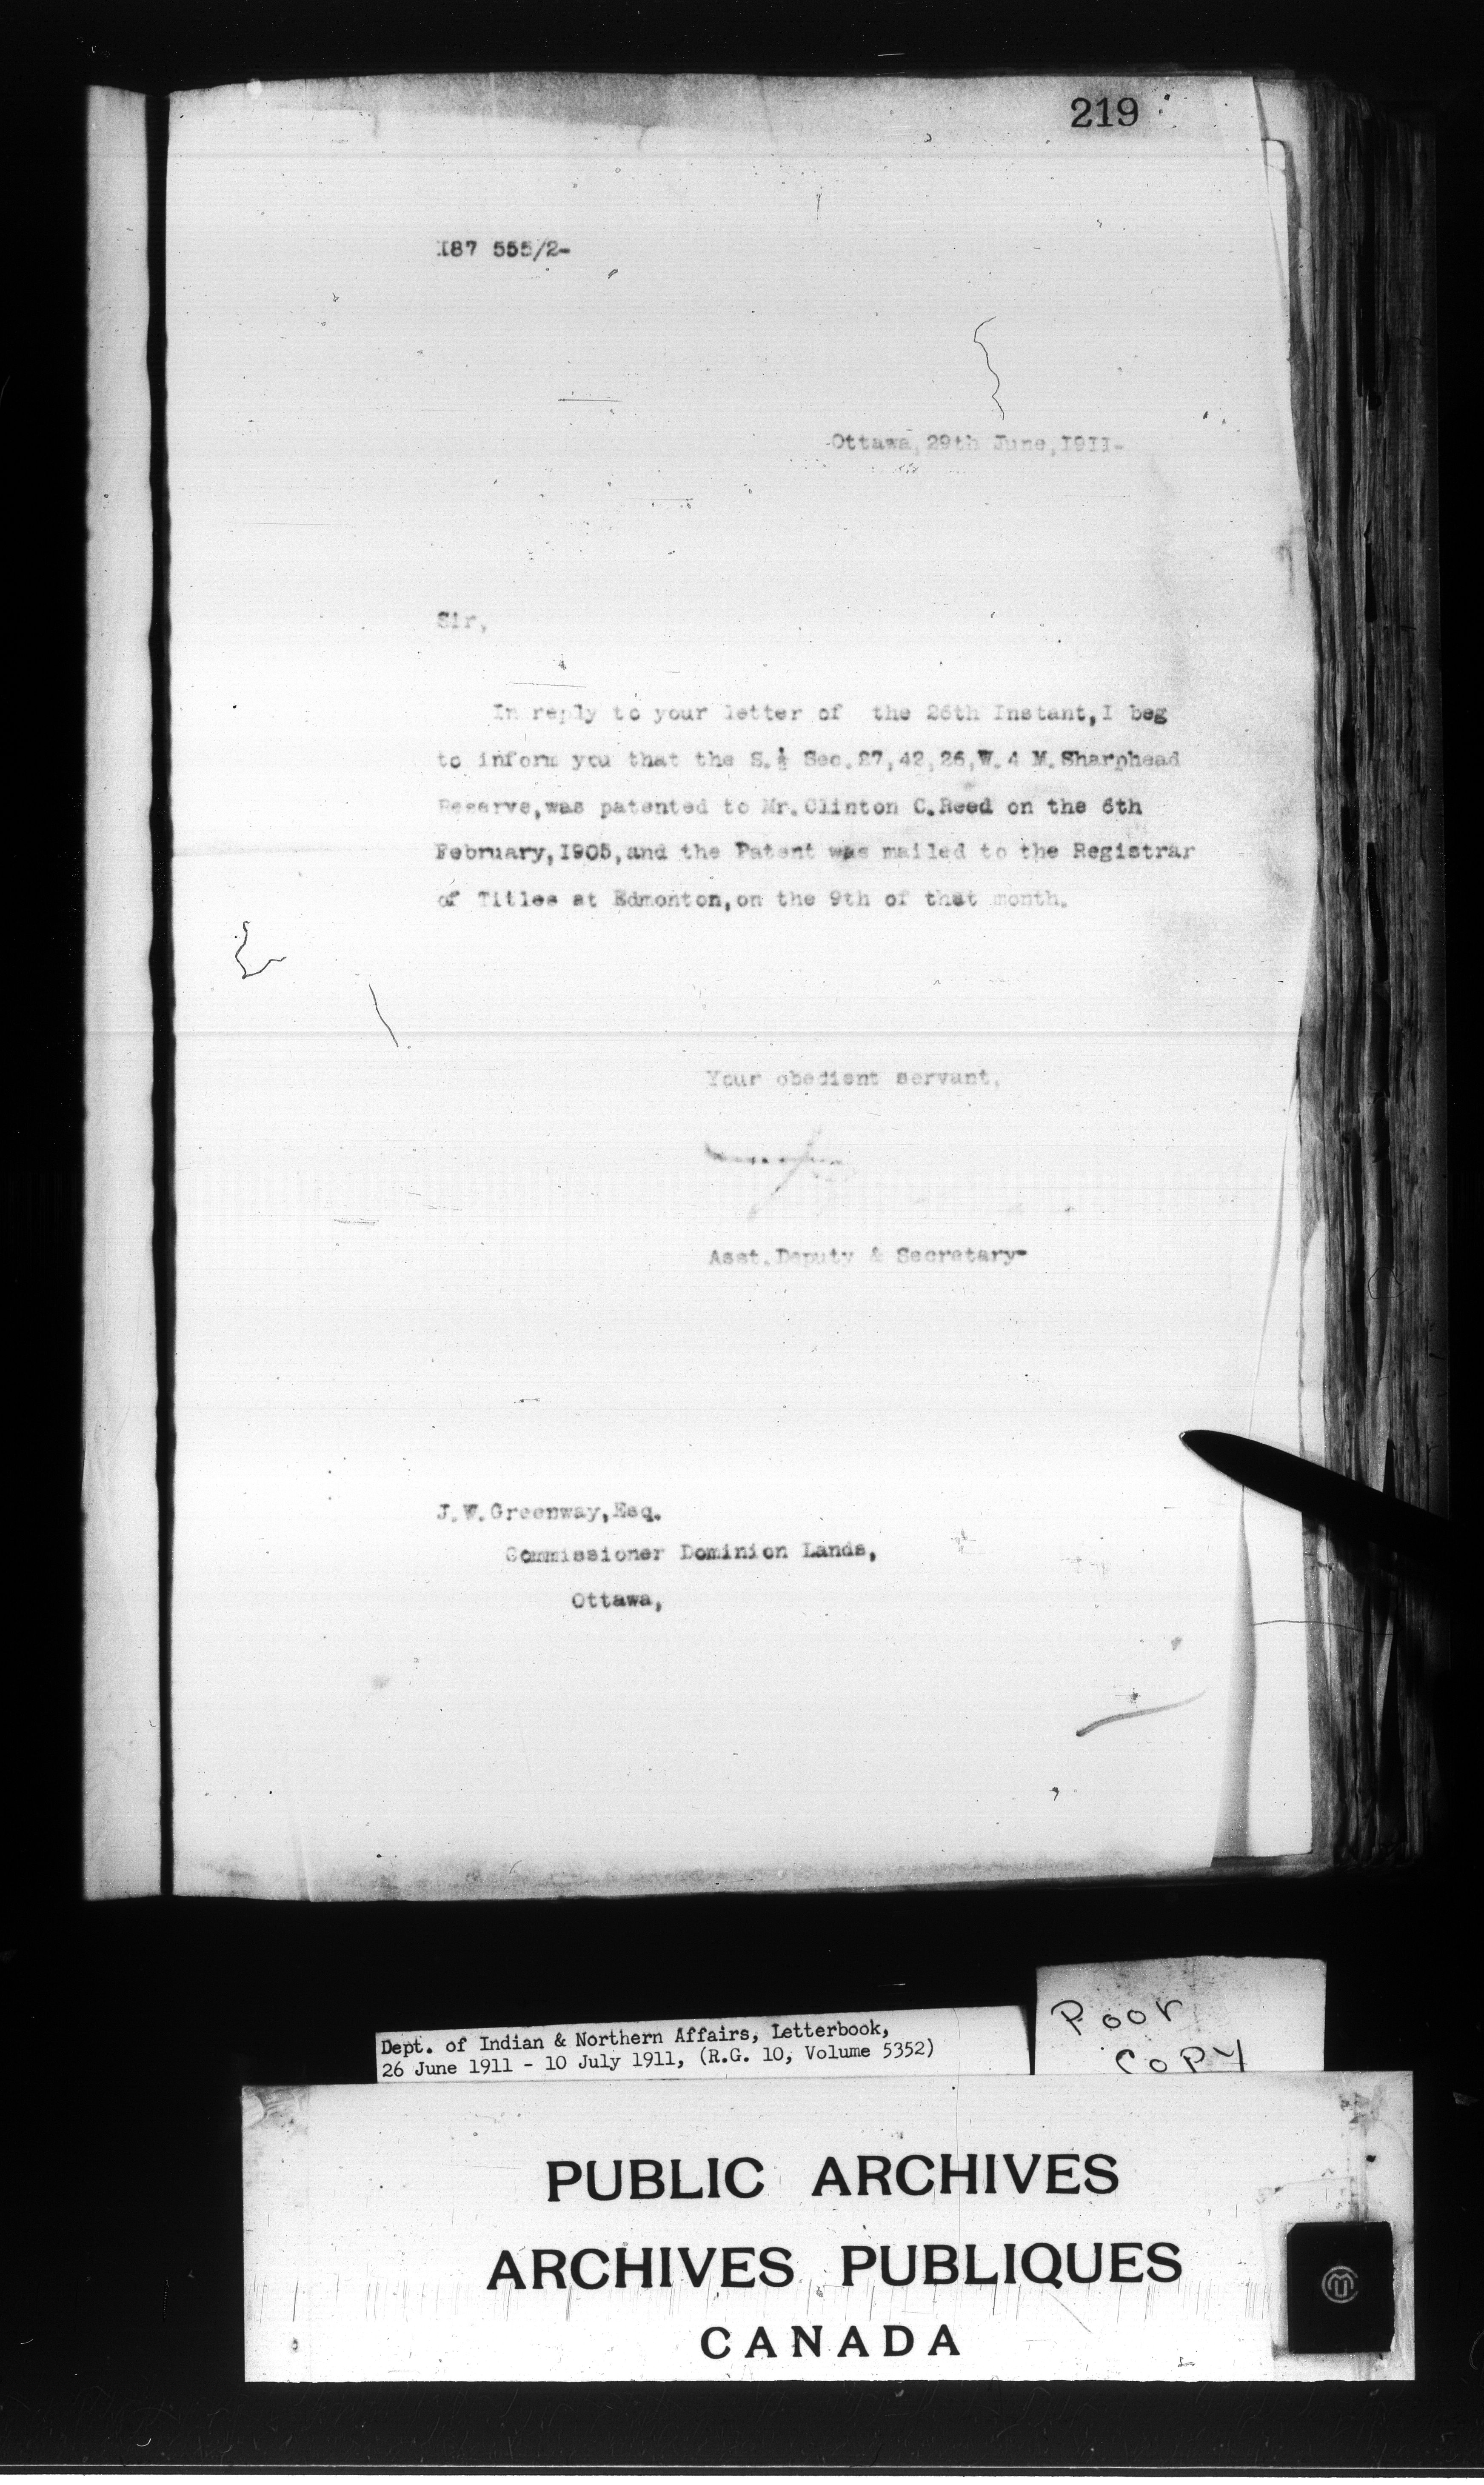 219
I87 555/2-
Ottawa, 29th June, I9II-
Sir,
In reply to your letter of the 26th Instant, I beg
to inform you that the S.½ Sec. 27, 42, 26, W. 4 M. Sharphead
Reserve, was patented to Mr. Clinton C. Reed on the 6th
February, I905, and the Patent was mailed to the Registrar
of Titles at Edmonton, on the 9th of that month.
Your obedient servant,
Asst. Deputy & Secretary-
J. W. Greenway, Esq.
Commissioner Dominion Lands,
Ottawa,
Dept. of Indian & Northern Affairs, Letterbook,
26 June 1911 - 10 July 1911, (R.G. 10, Volume 5352)
Poor
COPY
PUBLIC ARCHIVES
ARCHIVES PUBLIQUES
CANADA